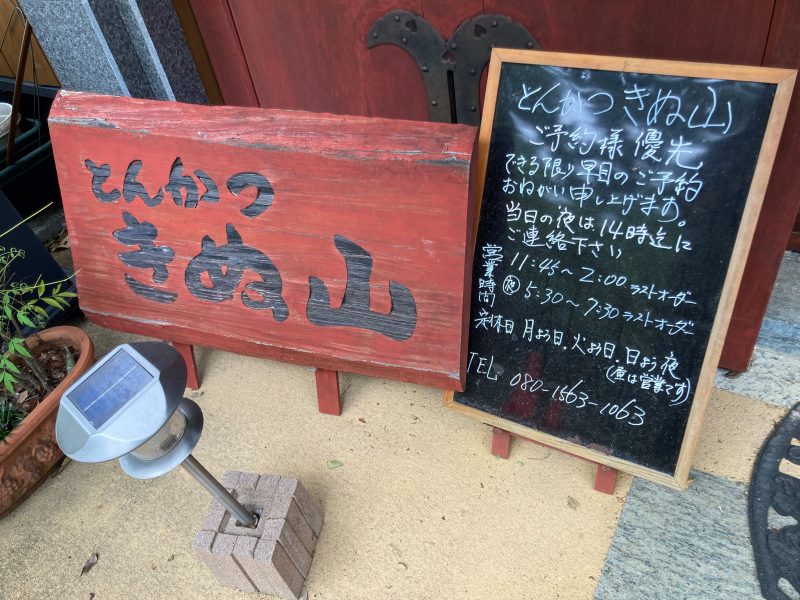 とんかつ
きぬ山
とんかつ きぬ山
ご予約様優先
できる限り早目のご予約
おねがい申し上げます。
当日の夜は14時迄に
ご連絡下さい
営業時間
11:45〜2:00 ラストオーダー
夜 5:30〜7:30 ラストオーダー
定休日 月よう日、火よう日、日よう夜
(昼は営業です)
TEL 080-1563-1063